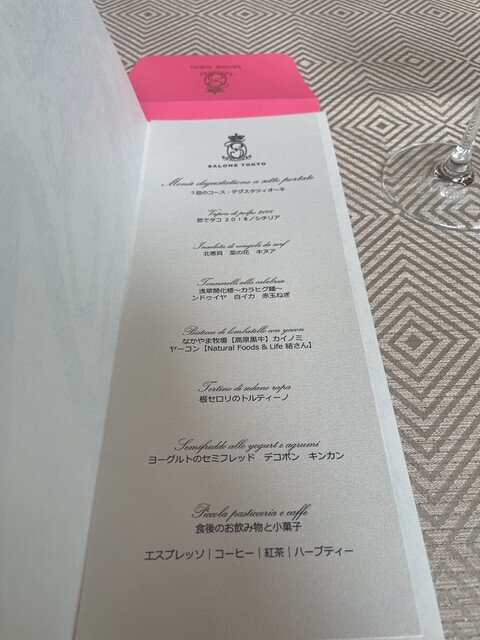 SALONE TOKYO
SALONE TOKYO
Menù degustazione a sette portate
7皿のコース・デグスタツィオーネ
Vapore di polpo 2018
茹でタコ 2018／シチリア
Insalata di vongola da surf
北寄貝　菜の花　キヌア
Tonnarelli alla calabrese
浅草開化楼～カラヒグ麺～
ンドゥイヤ　白イカ　赤玉ねぎ
Bistecca di lombatello con yacon
なかやま牧場【高原黒牛】カイノミ
ヤーコン【Natural Foods & Life 結さん】
Tortino di sedano rapa
根セロリのトルティーノ
Semifreddo allo yogurt e agrumi
ヨーグルトのセミフレッド　デコポン　キンカン
Piccola pasticceria e caffe
食後のお飲み物と小菓子
エスプレッソ｜コーヒー｜紅茶｜ハーブティー